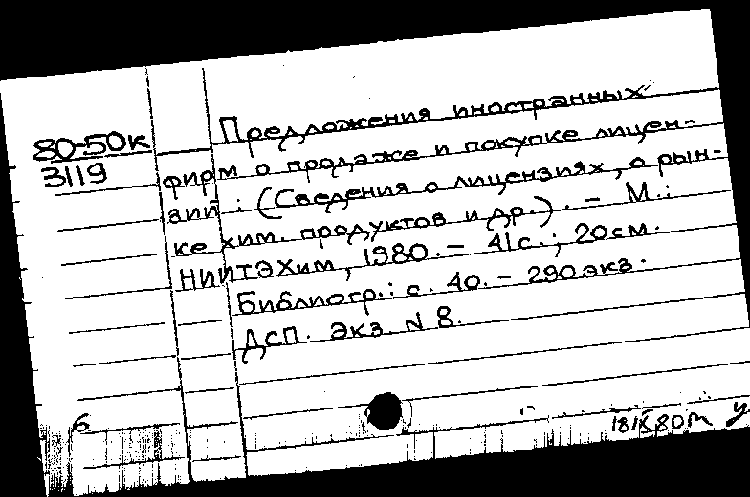 80-50к
3119
Предложения иностранных
фирм о продаже и покупке лицен-
зий : (Сведения о лицензиях, о рын-
ке хим. продуктов и др.). - М.:
НИИТЭХим, 1980. - 41с.; 20см.
Библиогр.: с. 40. - 290экз.
ДСП. Экз. N 8.
6
181X80м у